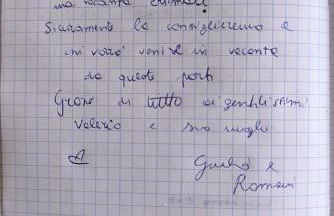 una vacanza
Sicuramente la consiglieremo a
chi vorrà venire in vacanza
da queste parti
Grazie di tutto ai gentilissimi
Valerio e sua moglie
Giulio e
Romani